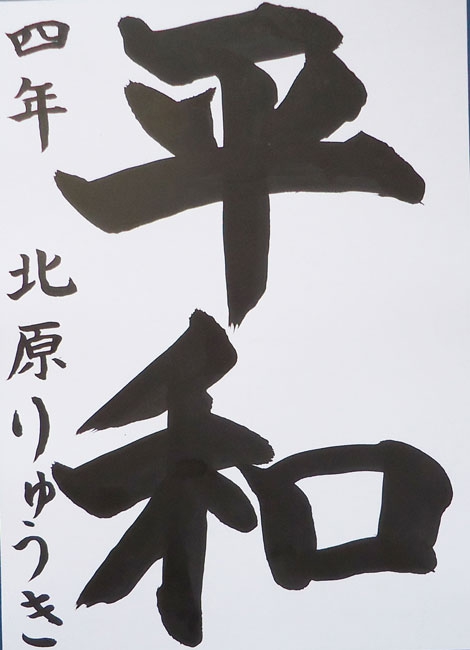 平和
四年 北原りゅうき